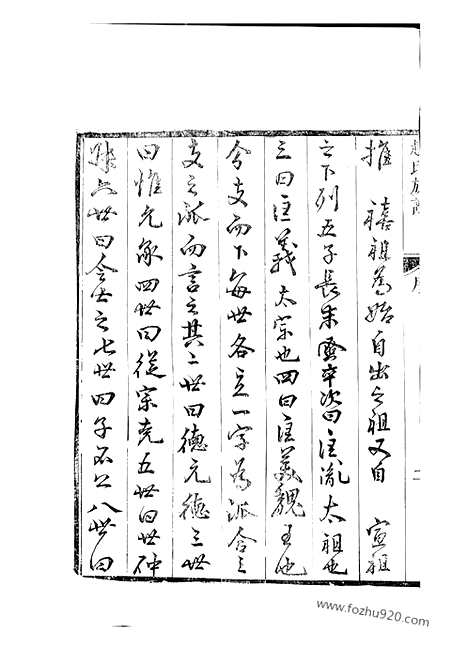 趙氏族譜
序
二
推 禧祖為始自出之祖又自 宣祖
之下列五子長蚤卒次曰匡胤太祖也
三曰匡義太宗也四曰匡美魏王也
分支而下每世各立一字為派合三
支之派而言之其二世曰德元德三世
曰惟允承四世曰從宗克五世曰世仲
叔六世曰令士之七世曰子不公八世曰
www.fozhu920.com